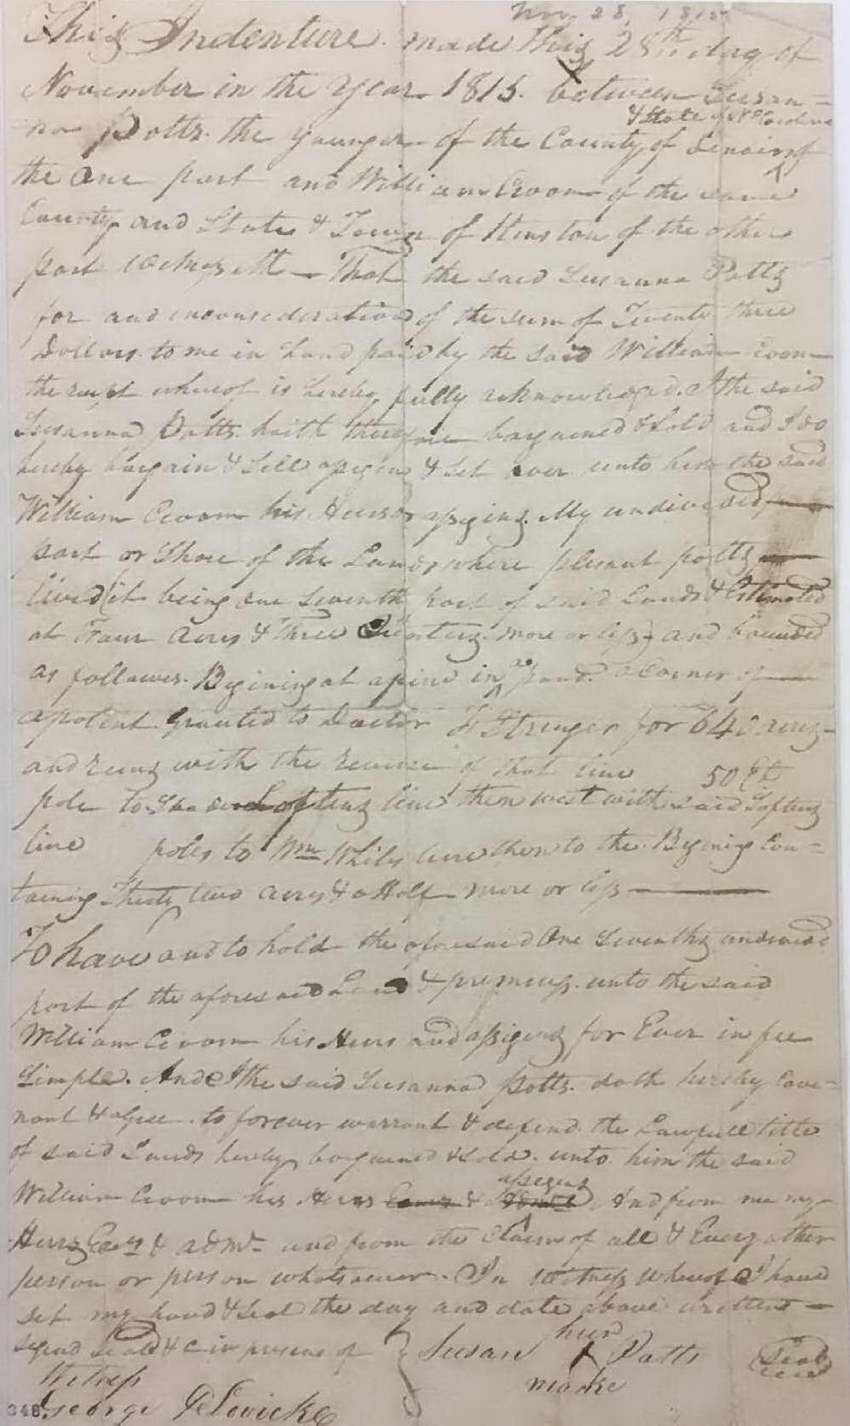 Nov 28, 1815
This Indenture made this 28th day of
November in the Year 1815. between Susan=
& State of N Carolina
na Potts the younger of the County of Lenoir of
the one part and William Croom of the same
County and State & Town of Kinston of the other
part witnesseth — That the said Susanna Potts
for and in consideration of the sum of Twenty three
Dollars to me in hand paid by the said William Croom
the rect whereof is hereby fully acknowledged. I the said
Susanna Potts hath therefore bargained & Sold and I do
hereby bargain & Sell assign & Set over unto him the said
William Croom his Heirs assigns. My undivided
part or Share of the Lands where plesant potts
lived (it being one seventh part of said Lands & Estimated
at Four acres & three Quarters more or less) and bounded
as follows. Begining at a pine in pond. a Corner of
a patent granted to Doctor F Stringer for 640 acres
and runs with the reverse of that line 50 Et
pole to Loftens line then west with said Loftens
line poles to Wm Whites line then to the Begining Con=
taining Thirty two acres & a Half more or less
To have and to hold the aforesaid One Seventh undivided
part of the aforesaid Land & premises. unto the said
William Croom his Heirs and assigns for Ever in fee
Simple. And I the said Susanna potts. doth hereby Cove=
nant & agree to forever warrant & defend the Lawfull title
of said Lands hereby bargained & sold. unto him the said
assigns
William Croom his Heirs & And from me my
Heirs Exrs & admr and from the Claim of all & Every other
person or person whatsoever. In witness whereof I have
set my hand & Seal the day and date above written
signd seald & c in presence of
Witness
Susan her X marke Potts (Seal)
George
348.